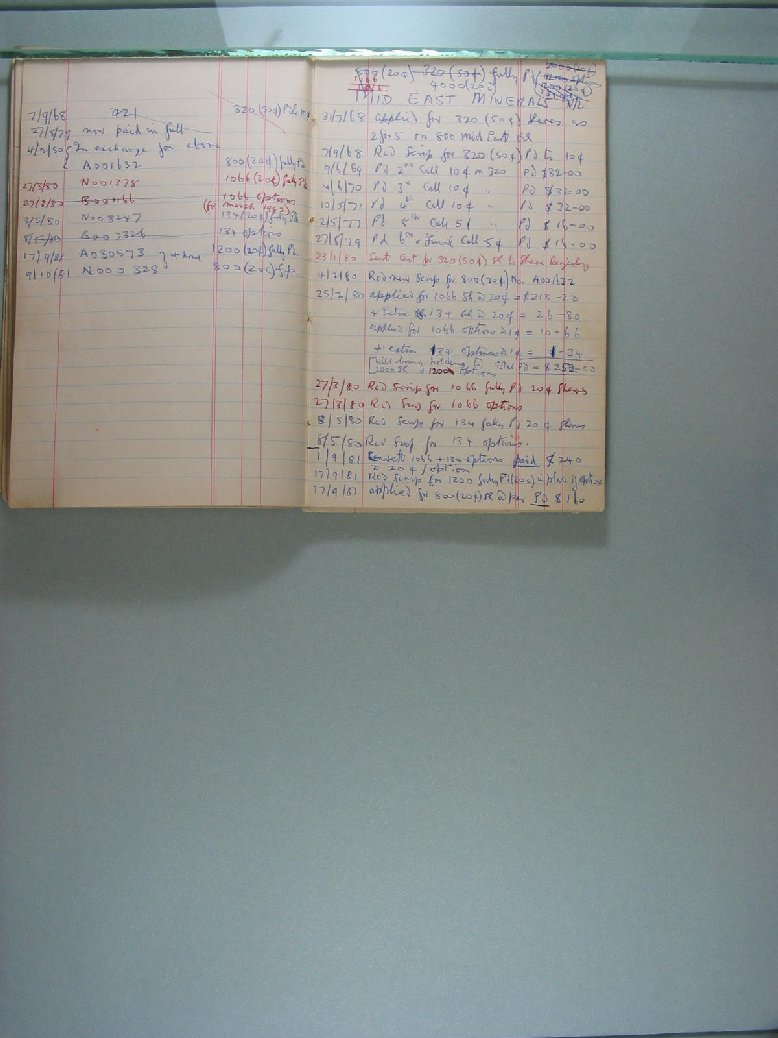 7/9/68 721 320 (50¢) Pd to 10¢
27/8/79 now paid in full
4/2/80 In exchange for above
A001632 800 (20¢) fully Pd
27/3/80 N001378 1066 (20¢) fully Pd
27/3/80 B00 166 1066 options
(for march 1982)
8/5/80 N003247 134 (20¢) fully Pd
8/5/80 B00 3326 134 options
17/9/81 A030573 1200 (20¢) fully Pd
9/10/81 N000 323 800 (20¢) f.p.
800 (20¢) 320 (50¢) fully Pd
4000 (20¢)
MID EAST MINERALS N/L
3/7/68 applied for 320 (50¢) shares as
2 for 5 on 800 Mid East Oil
7/9/68 Rcd Scrip for 320 (50¢) Pd to 10¢
9/6/69 Pd 2nd Call 10¢ on 320 Pd $32-00
4/6/70 Pd 3rd Call 10¢ " Pd $32-00
10/5/71 Pd 4th Call 10¢ " Pd $32-00
2/5/77 Pd 5th Call 5¢ " Pd $16-00
27/8/79 Pd 6th & Final Call 5¢ Pd $16-00
23/1/80 Sent Cert for 320 (50¢) Sh to Share Registry
4/2/80 Rcd new Scrip for 800 (20¢) No. A001632
25/2/80 applied for 1066 Sh @ 20¢ = $213-20
+ Extra 134 Sh @ 20¢ = 26-80
applied for 1066 options @ 1¢ = 10-66
+ extra 134 options @ 1¢ = 1-34
will bring holding to Total Pd = $252-00
2000 Sh & 1200 options
27/3/80 Rcd Scrip for 1066 fully Pd 20¢ Shares
27/3/80 Rcd Scrip for 1066 options
8/5/80 Rcd Scrip for 134 fully Pd 20¢ Shares
8/5/80 Rcd Scrip for 134 options.
1/9/81 Convert 1066 + 134 options paid $240
@ 20¢ / option
17/9/81 Rcd Scrip for 1200 fully Pd (20¢) in place of options
17/9/81 applied for 800 (20¢) Pd $160